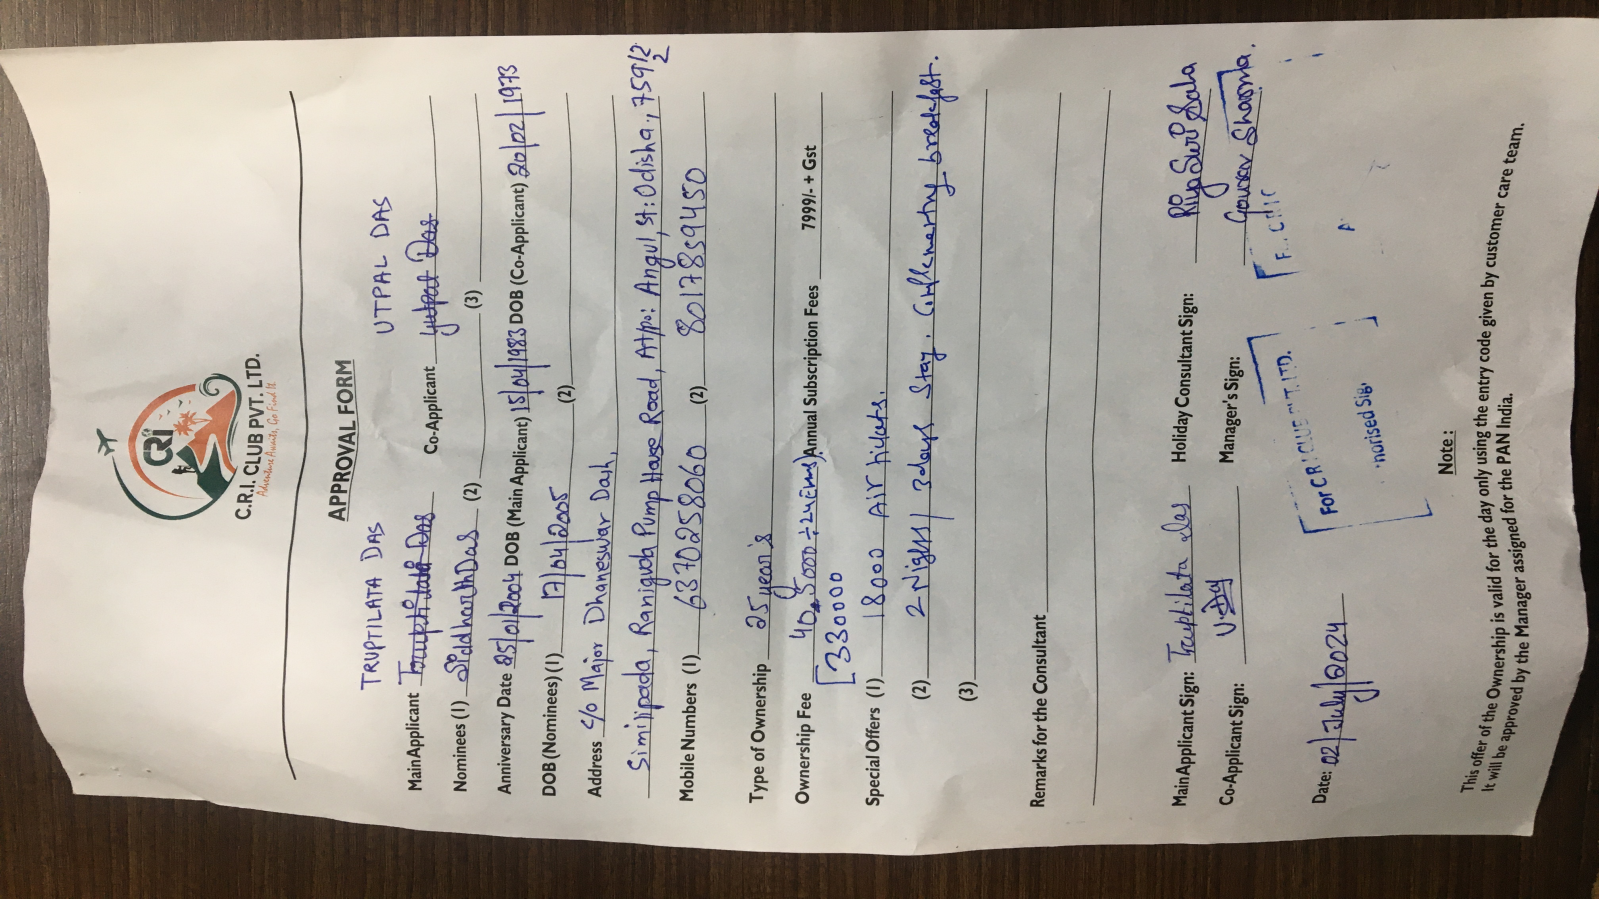 CRI
C.R.I. CLUB PVT. LTD.
Adventure Awaits, Go Find It
APPROVAL FORM
TRUPTILATA DAS UTPAL DAS
Main Applicant Truptilata Das Co-Applicant Utpal Das
Nominees (1) Siddharth Das (2) (3)
Anniversary Date 25/01/2004 DOB (Main Applicant) 15/04/1983 DOB (Co-Applicant) 20/02/1973
DOB (Nominees) (1) 17/04/2005 (2)
Address C/o Major Dhaneswar Dash,
Similipada, Raniguda Pump House Road, At/po: Angul, St: Odisha., 759122
Mobile Numbers (1) 6370258060 (2) 8017859450
Type of Ownership 25 year's
Ownership Fee 40,5000 ÷ 24 Emi) Annual Subscription Fees 7999/- + Gst
[330000
Special Offers (1) 18000 Air tickets.
(2) 2 Nigers / 3days Stay. Complementry breakfast.
(3)
Remarks for the Consultant
Main Applicant Sign: Truptilata das Holiday Consultant Sign: Saha
Co-Applicant Sign: Manager's Sign: Gourav Sharma.
For C R I CLUB PVT. LTD.
horised Sig.
Date: 02/July/2024
Note :
This offer of the Ownership is valid for the day only using the entry code given by customer care team.
It will be approved by the Manager assigned for the PAN India.